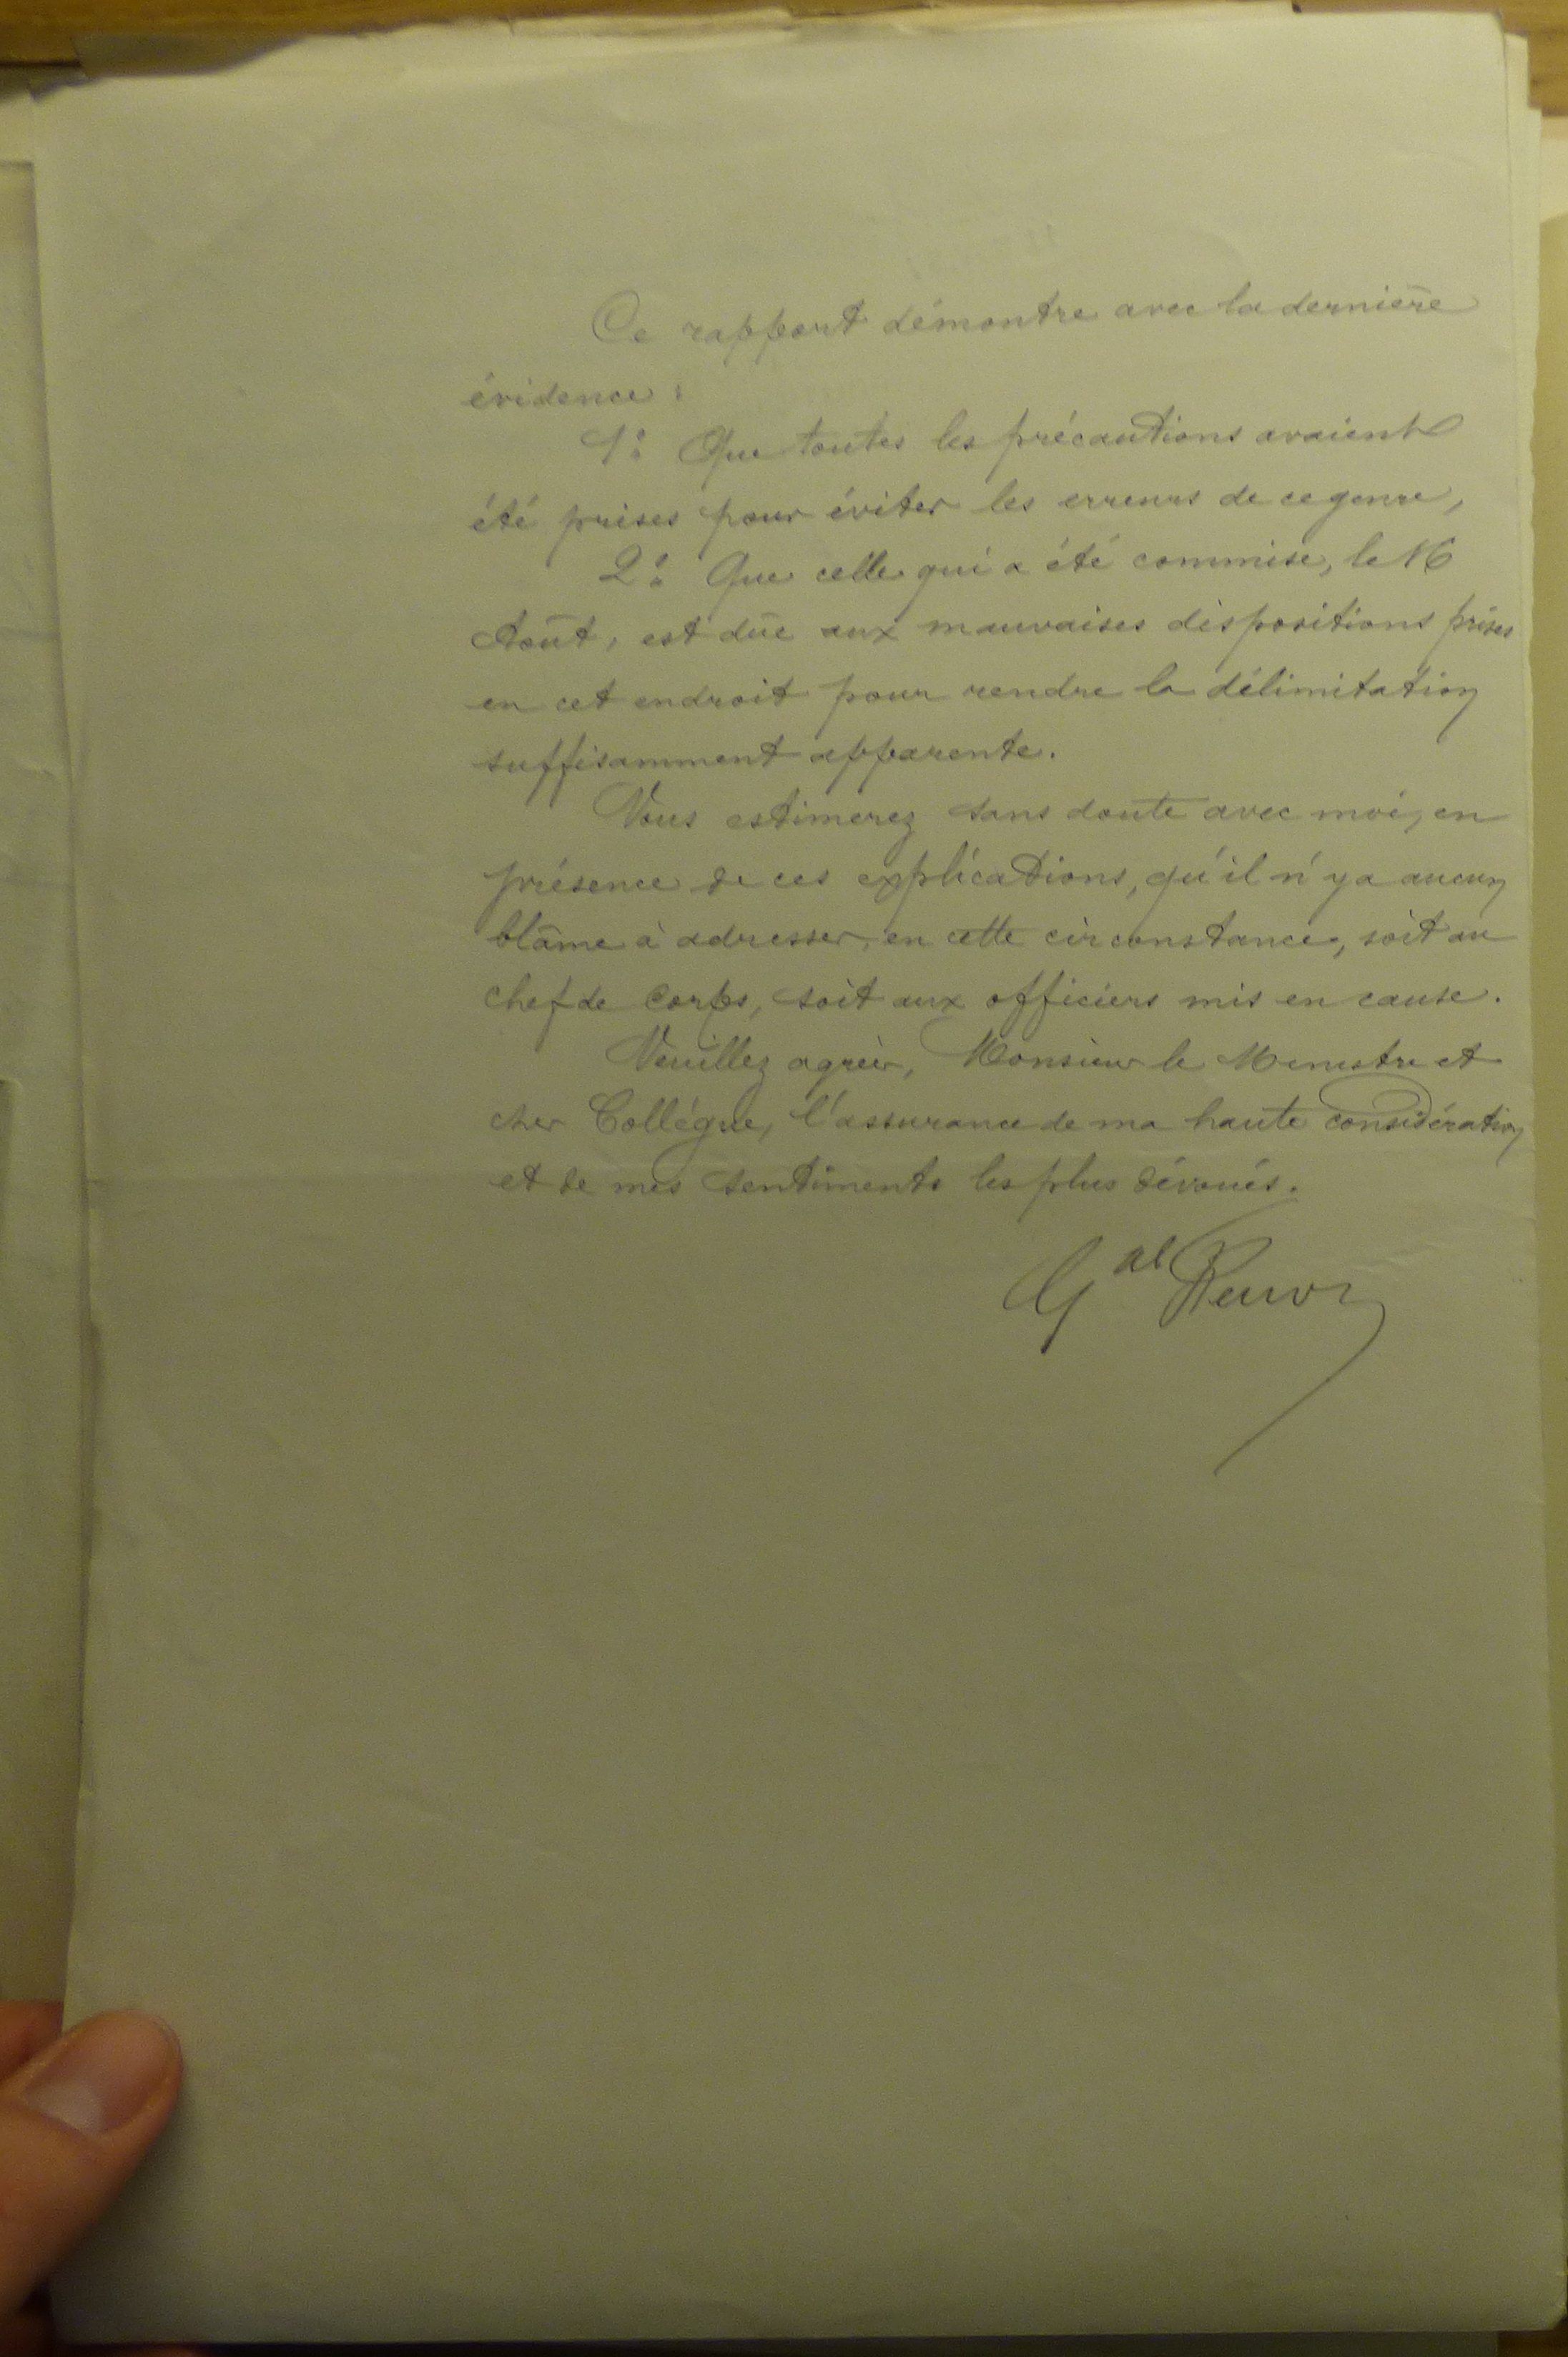 Ce rapport démontre avec la dernière
évidence :
1º Que toutes les précautions avaient
été prises pour éviter les erreurs de ce genre,
2º Que celle qui a été commise, le 16
Août, est dûe aux mauvaises dispositions prises
en cet endroit pour rendre la délimitation
suffisamment apparente.
Vous estimerez sans doute avec moi, en
présence de ces explications, qu'il n'y a aucun
blâme à adresser, en cette circonstance, soit au
chef de Corps, soit aux officiers mis en cause.
Veuillez agréer, Monsieur le Ministre et
cher Collègue, l'assurance de ma haute considération
et de mes sentiments les plus dévoués.
Gal